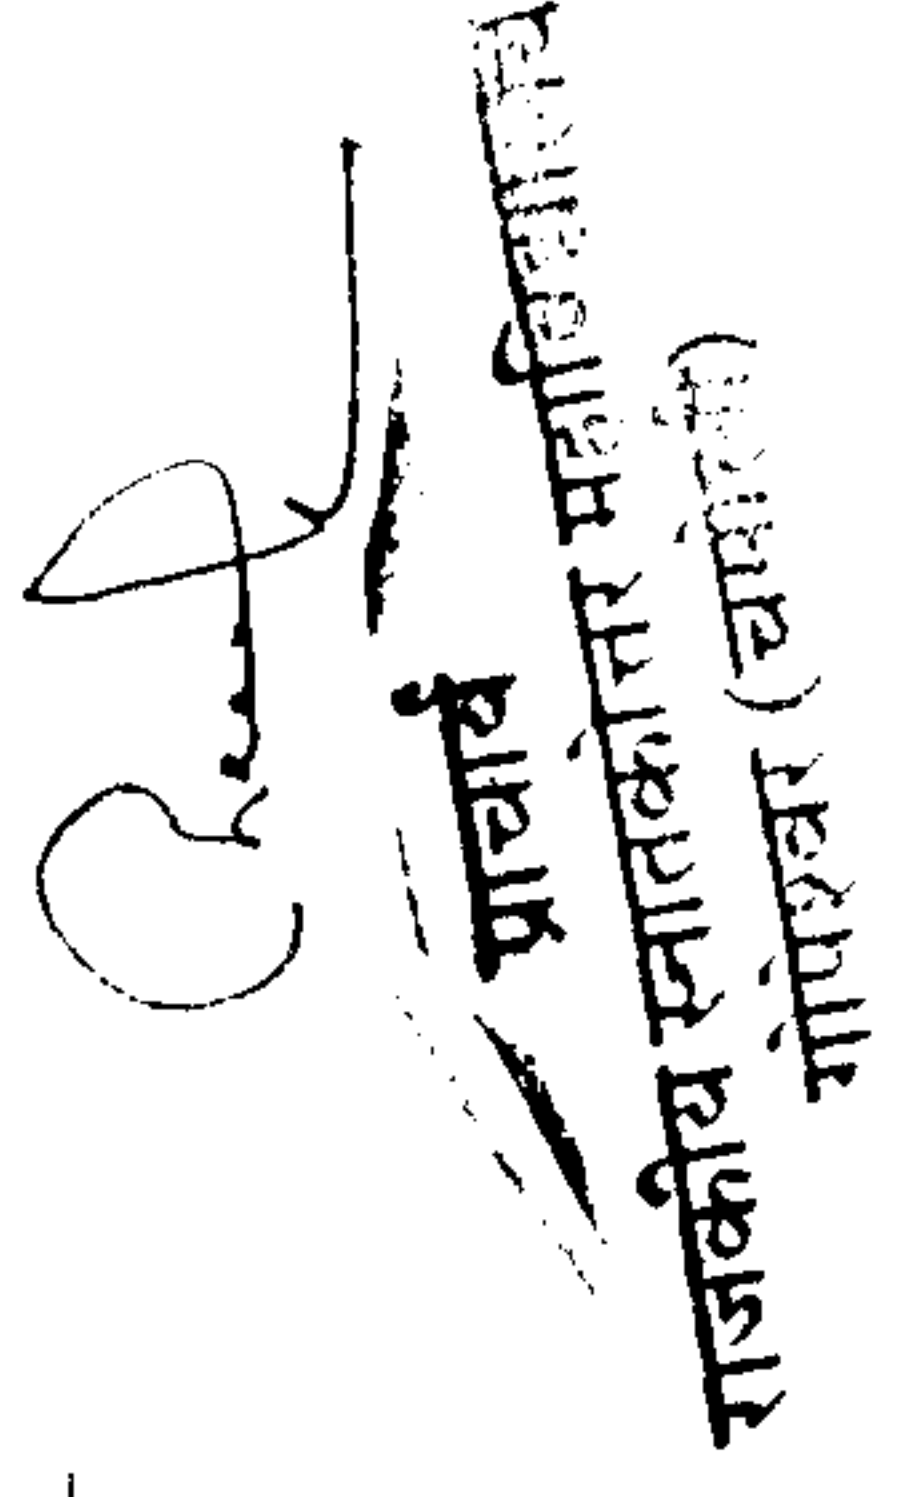 प्राचार्य
राजकीय स्नातकोत्तर महाविद्यालय
गोपेश्वर (चमोली)